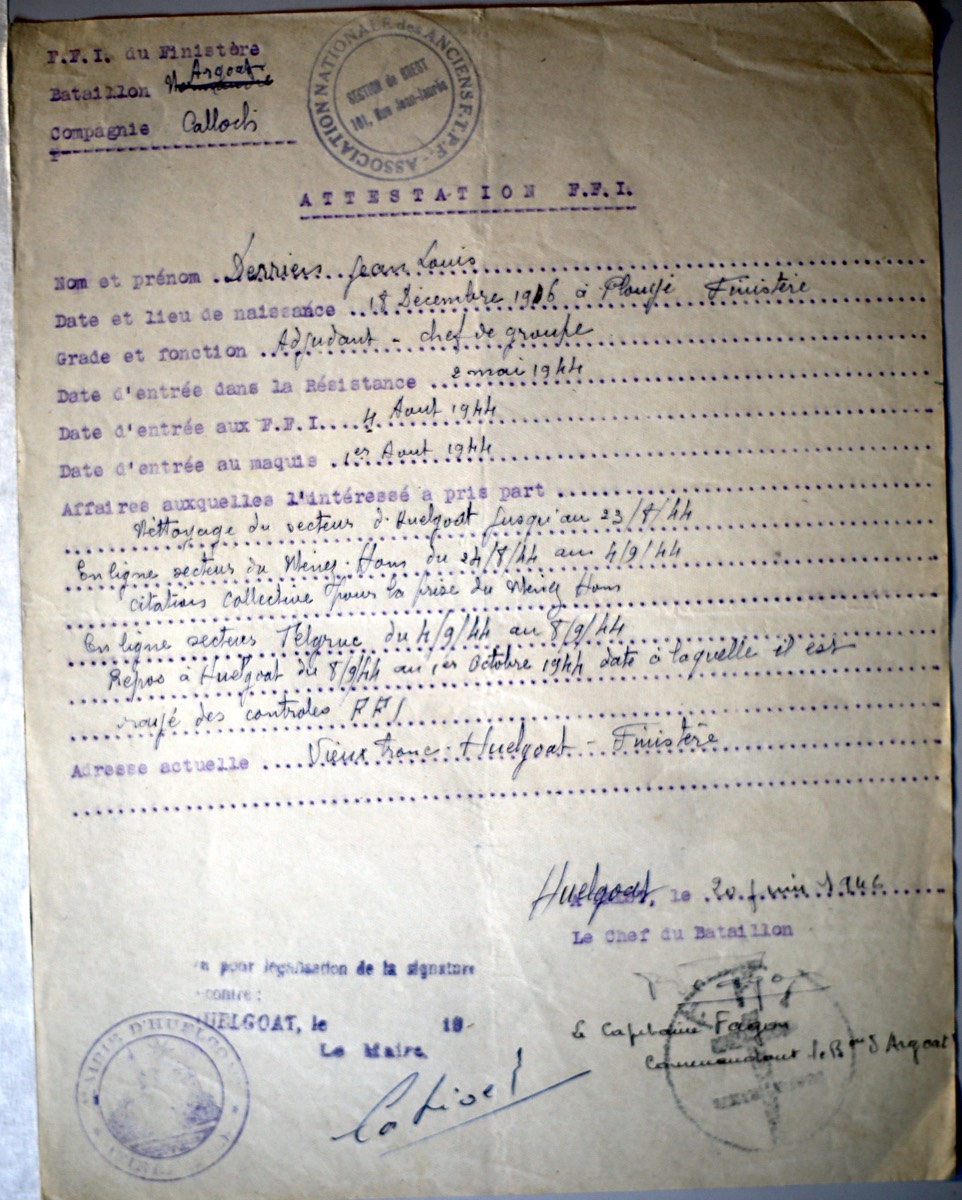 F.F.I. du Finistère
Bataillon Argoat
Compagnie Calloch
ASSOCIATION NATIONALE des ANCIENS F.T.P.F.
SECTION de BREST
101, Rue Jean-Jaurès
ATTESTATION F.F.I.
Nom et prénom Derrien Jean Louis
Date et lieu de naissance 18 Décembre 1916 à Plouyé Finistère
Grade et fonction Adjudant - chef de groupe
Date d'entrée dans la Résistance 2 mai 1944
Date d'entrée aux F.F.I. 4 Aout 1944
Date d'entrée au maquis 1er Aout 1944
Affaires auxquelles l'intéressé a pris part
Nettoyage du secteur d'Huelgoat jusqu'au 23/8/44
En ligne secteur du Menez-Hom du 24/8/44 au 4/9/44
citation collective pour la prise du Menez Hom
En ligne secteur Telgruc du 4/9/44 au 8/9/44
Repos à Huelgoat du 8/9/44 au 1er Octobre 1944 date à laquelle il est
rayé des controles FFI
Adresse actuelle Vieux tronc - Huelgoat - Finistère
Huelgoat, le 20 1946
Le Chef du Bataillon
pour légalisation de la signature
contre :
HUELGOAT, le 19
Le Maire,
MAIRIE D'HUELGOAT
Le Capitaine Fagon
Commandant le Bon d'Argoat